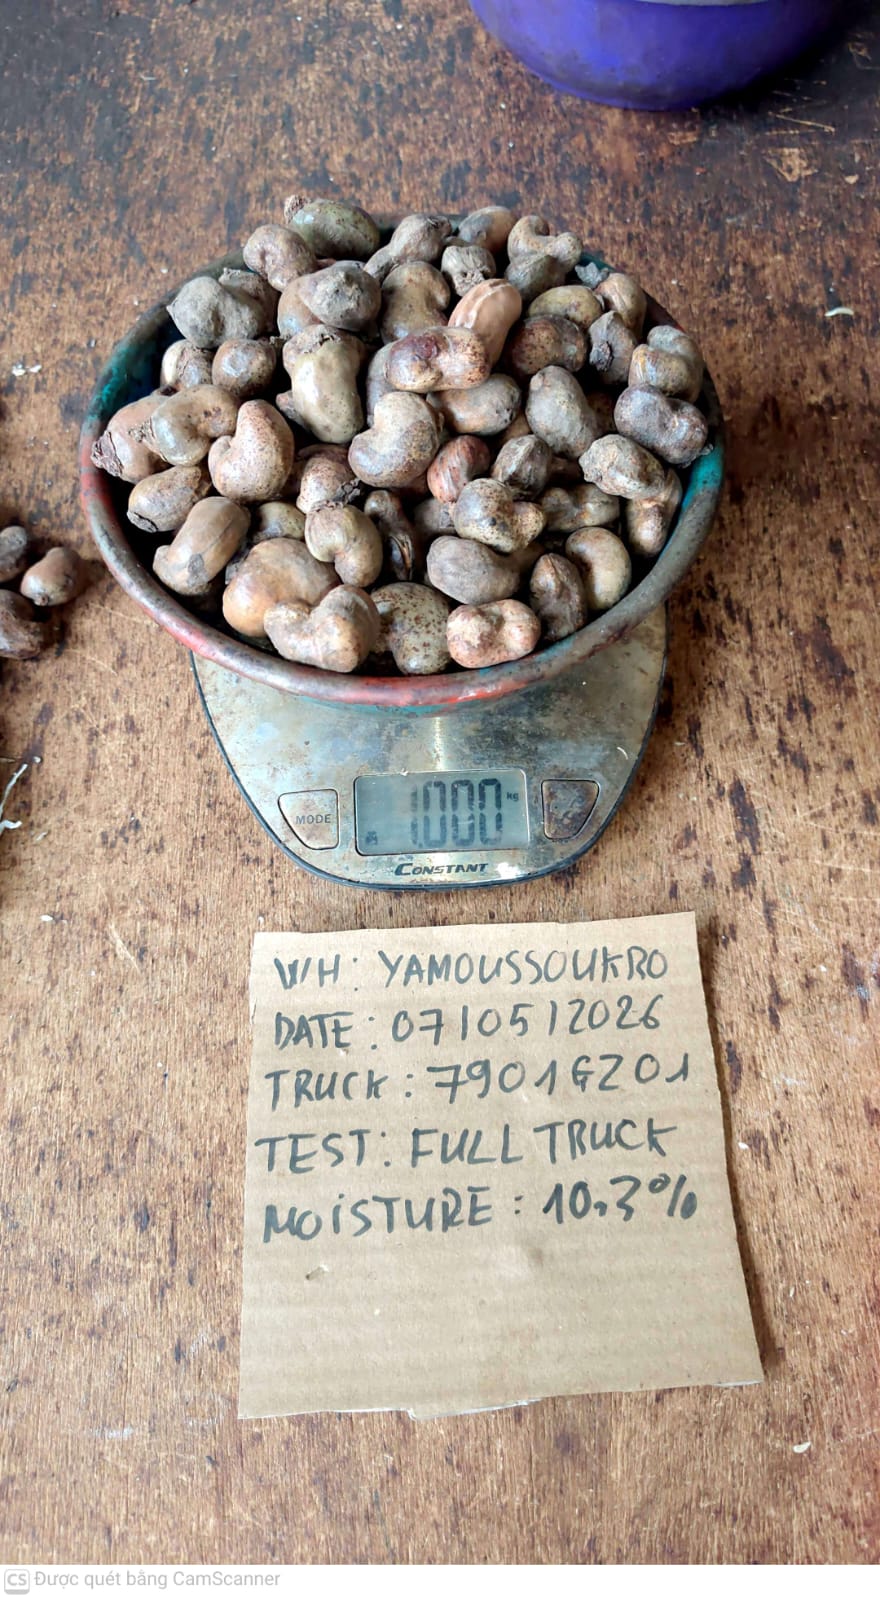 1.000 kg
MODE
CONSTANT
W/H: YAMOUSSOUKRO
DATE: 07/05/2026
TRUCK: 7901GZ01
TEST: FULL TRUCK
MOISTURE: 10.3%
CS Được quét bằng CamScanner